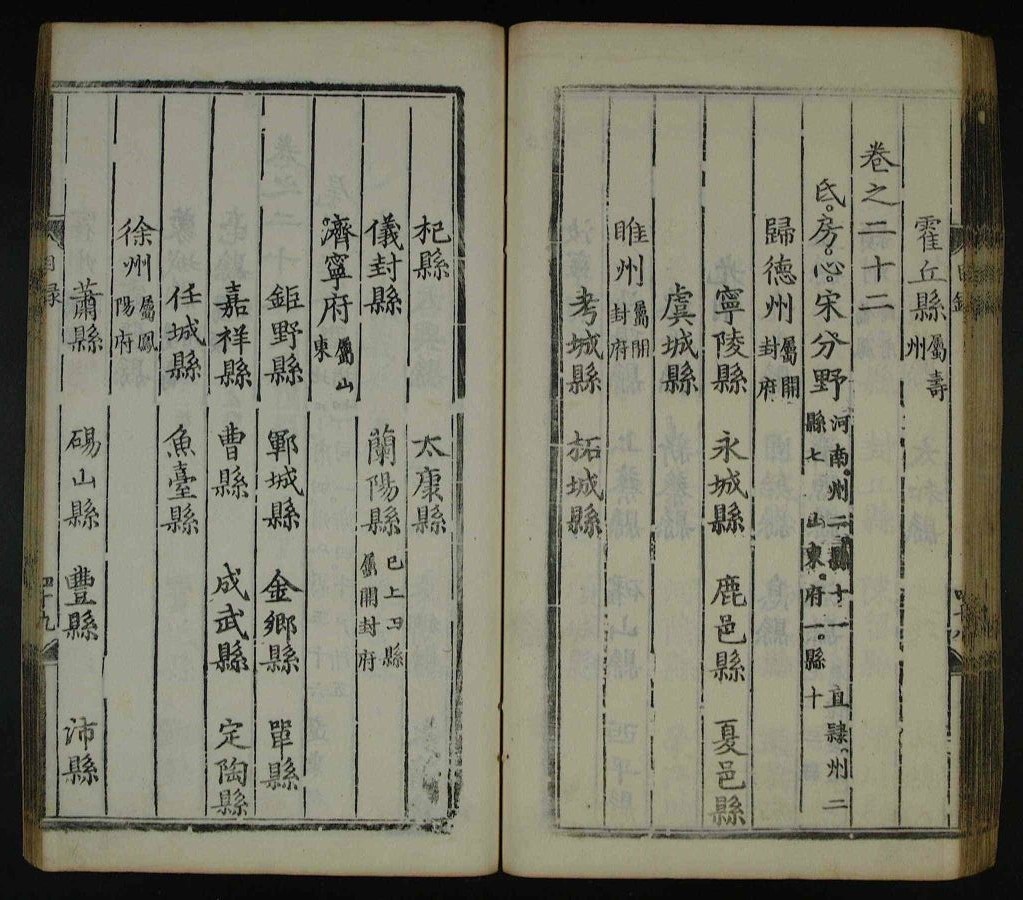 霍丘縣屬壽州
卷之二十二
氐房心宋分野河南州二縣十一直隸州二縣七山東府一縣十
歸德州屬開封府
寧陵縣 永城縣 鹿邑縣 夏邑縣
虞城縣
睢州屬開封府
考城縣 柘城縣
杞縣 太康縣
儀封縣 蘭陽縣已上四縣屬開封府
濟寧府屬山東
鉅野縣 鄆城縣 金鄉縣 單縣
嘉祥縣 曹縣 成武縣 定陶縣
任城縣 魚臺縣
徐州屬鳳陽府
蕭縣 碭山縣 豐縣 沛縣
目錄 四十九